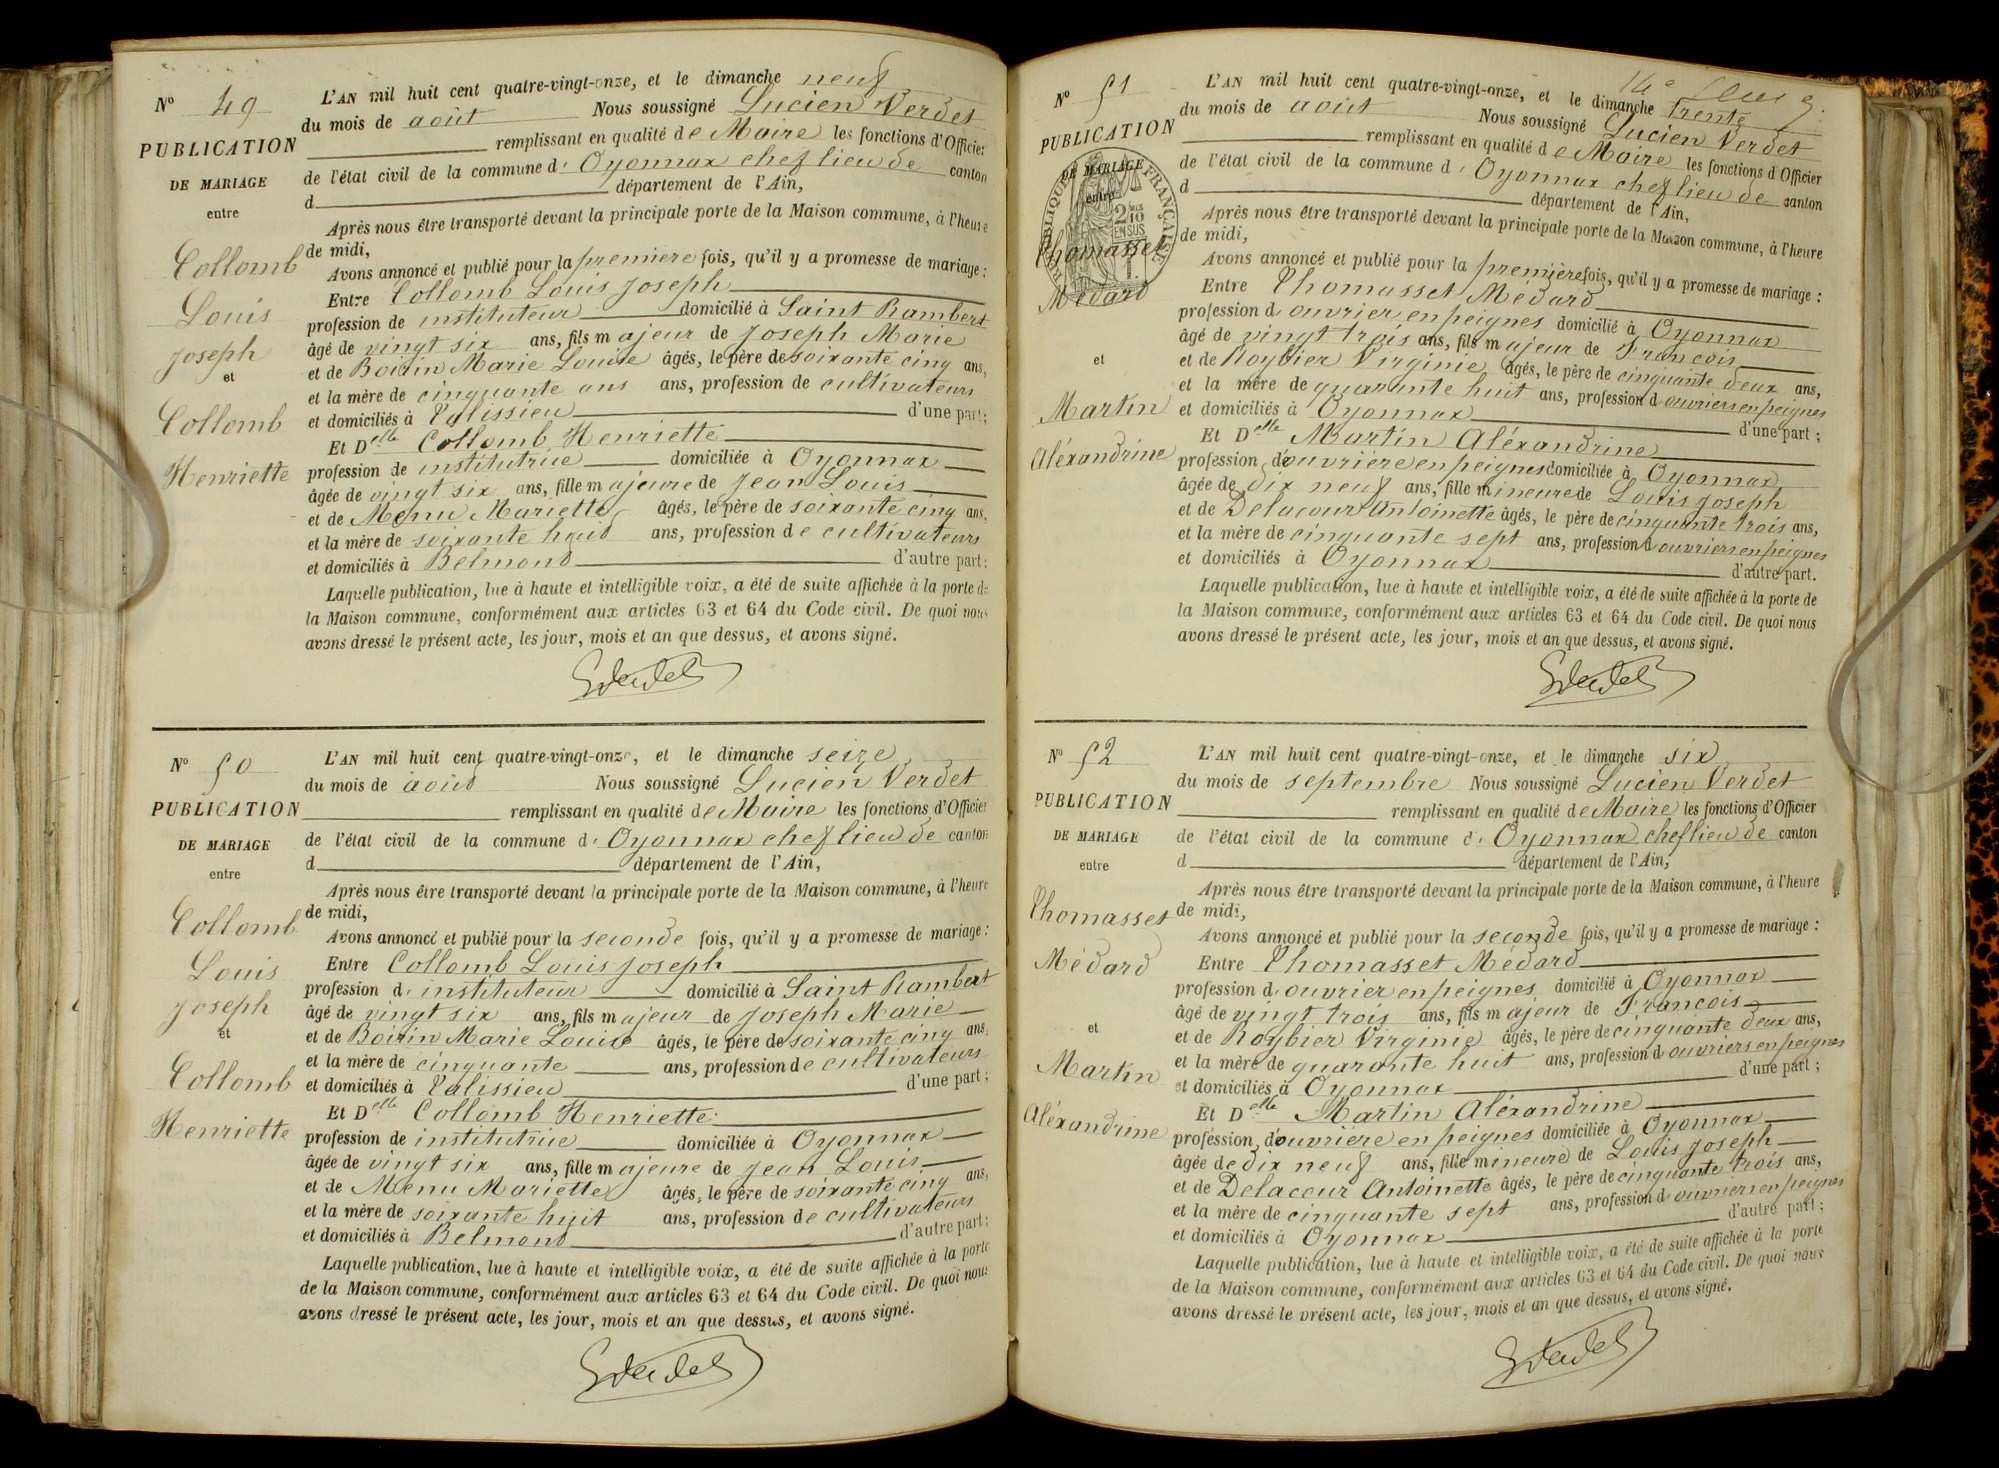 Nº 49
PUBLICATION
DE MARIAGE
entre
Collomb
Louis
Joseph
et
Collomb
Henriette
L'AN mil huit cent quatre-vingt-onze, et le dimanche neuf
du mois de août Nous soussigné Lucien Verdet
remplissant en qualité de Maire les fonctions d'Officier
de l'état civil de la commune d' Oyonnax chef lieu de canton
d département de l'Ain,
Après nous être transporté devant la principale porte de la Maison commune, à l'heure
de midi,
Avons annoncé et publié pour la premiere fois, qu'il y a promesse de mariage :
Entre Collomb Louis Joseph
profession de instituteur domicilié à Saint Rambert
âgé de vingt six ans, fils majeur de Joseph Marie
et de Boitin Marie Louise âgés, le père de soixante cinq ans,
et la mère de cinquante ans ans, profession de cultivateurs
et domiciliés à Talissieu d'une part ;
Et Delle Collomb Henriette
profession de institutrice domiciliée à Oyonnax
âgée de vingt six ans, fille majeure de Jean Louis
et de Menu Mariette âgés, le père de soixante cinq ans,
et la mère de soixante huit ans, profession de cultivateurs
et domiciliés à Belmond d'autre part ;
Laquelle publication, lue à haute et intelligible voix, a été de suite affichée à la porte de
la Maison commune, conformément aux articles 63 et 64 du Code civil. De quoi nous
avons dressé le présent acte, les jour, mois et an que dessus, et avons signé.
Nº 50
PUBLICATION
DE MARIAGE
entre
Collomb
Louis
Joseph
et
Collomb
Henriette
L'AN mil huit cent quatre-vingt-onze, et le dimanche seize
du mois de août Nous soussigné Lucien Verdet
remplissant en qualité de Maire les fonctions d'Officier
de l'état civil de la commune d' Oyonnax chef lieu de canton
d département de l'Ain,
Après nous être transporté devant la principale porte de la Maison commune, à l'heure
de midi,
Avons annoncé et publié pour la seconde fois, qu'il y a promesse de mariage :
Entre Collomb Louis Joseph
profession d' instituteur domicilié à Saint Rambert
âgé de vingt six ans, fils majeur de Joseph Marie
et de Boitin Marie Louise âgés, le père de soixante cinq ans,
et la mère de cinquante ans, profession de cultivateurs
et domiciliés à Talissieu d'une part ;
Et Delle Collomb Henriette
profession de institutrice domiciliée à Oyonnax
âgée de vingt six ans, fille majeure de Jean Louis
et de Menu Mariette âgés, le père de soixante cinq ans,
et la mère de soixante huit ans, profession de cultivateurs
et domiciliés à Belmond d'autre part ;
Laquelle publication, lue à haute et intelligible voix, a été de suite affichée à la porte
de la Maison commune, conformément aux articles 63 et 64 du Code civil. De quoi nous
avons dressé le présent acte, les jour, mois et an que dessus, et avons signé.
Nº 51
PUBLICATION
DE MARIAGE
entre
Thomasset
Médard
et
Martin
Aléxandrine
L'AN mil huit cent quatre-vingt-onze, et le dimanche trente
du mois de août Nous soussigné Lucien Verdet
remplissant en qualité de Maire les fonctions d'Officier
de l'état civil de la commune d' Oyonnax chef lieu de canton
d département de l'Ain,
Après nous être transporté devant la principale porte de la Maison commune, à l'heure
de midi,
Avons annoncé et publié pour la première fois, qu'il y a promesse de mariage :
Entre Thomasset Médard
profession d ouvrier en peignes domicilié à Oyonnax
âgé de vingt trois ans, fils majeur de Francois
et de Roybier Virginie âgés, le père de cinquante deux ans,
et la mère de quarante huit ans, profession d ouvriers en peignes
et domiciliés à Oyonnax d'une part ;
Et Delle Martin Aléxandrine
profession d'ouvrière en peignes domiciliée à Oyonnax
âgée de dix neuf ans, fille mineure de Louis Joseph
et de Delacour Antoinette âgés, le père de cinquante trois ans,
et la mère de cinquante sept ans, profession d ouvriers en peignes
et domiciliés à Oyonnax d'autre part.
Laquelle publication, lue à haute et intelligible voix, a été de suite affichée à la porte de
la Maison commune, conformément aux articles 63 et 64 du Code civil. De quoi nous
avons dressé le présent acte, les jour, mois et an que dessus, et avons signé.
Nº 52
PUBLICATION
DE MARIAGE
entre
Thomasset
Médard
et
Martin
Aléxandrine
L'AN mil huit cent quatre-vingt-onze, et le dimanche six
du mois de septembre Nous soussigné Lucien Verdet
remplissant en qualité de Maire les fonctions d'Officier
de l'état civil de la commune d' Oyonnax chef lieu de canton
d département de l'Ain,
Après nous être transporté devant la principale porte de la Maison commune, à l'heure
de midi,
Avons annoncé et publié pour la seconde fois, qu'il y a promesse de mariage :
Entre Thomasset Médard
profession d ouvrier en peignes domicilié à Oyonnax
âgé de vingt trois ans, fils majeur de Francois
et de Roybier Virginie âgés, le père de cinquante deux ans,
et la mère de quarante huit ans, profession d ouvriers en peignes
et domiciliés à Oyonnax d'une part ;
Et Delle Martin Aléxandrine
profession d'ouvrière en peignes domiciliée à Oyonnax
âgée de dix neuf ans, fille mineure de Louis Joseph
et de Delacour Antoinette âgés, le père de cinquante trois ans,
et la mère de cinquante sept ans, profession d ouvriers en peignes
et domiciliés à Oyonnax d'autre part ;
Laquelle publication, lue à haute et intelligible voix, a été de suite affichée à la porte
de la Maison commune, conformément aux articles 63 et 64 du Code civil. De quoi nous
avons dressé le présent acte, les jour, mois et an que dessus, et avons signé.